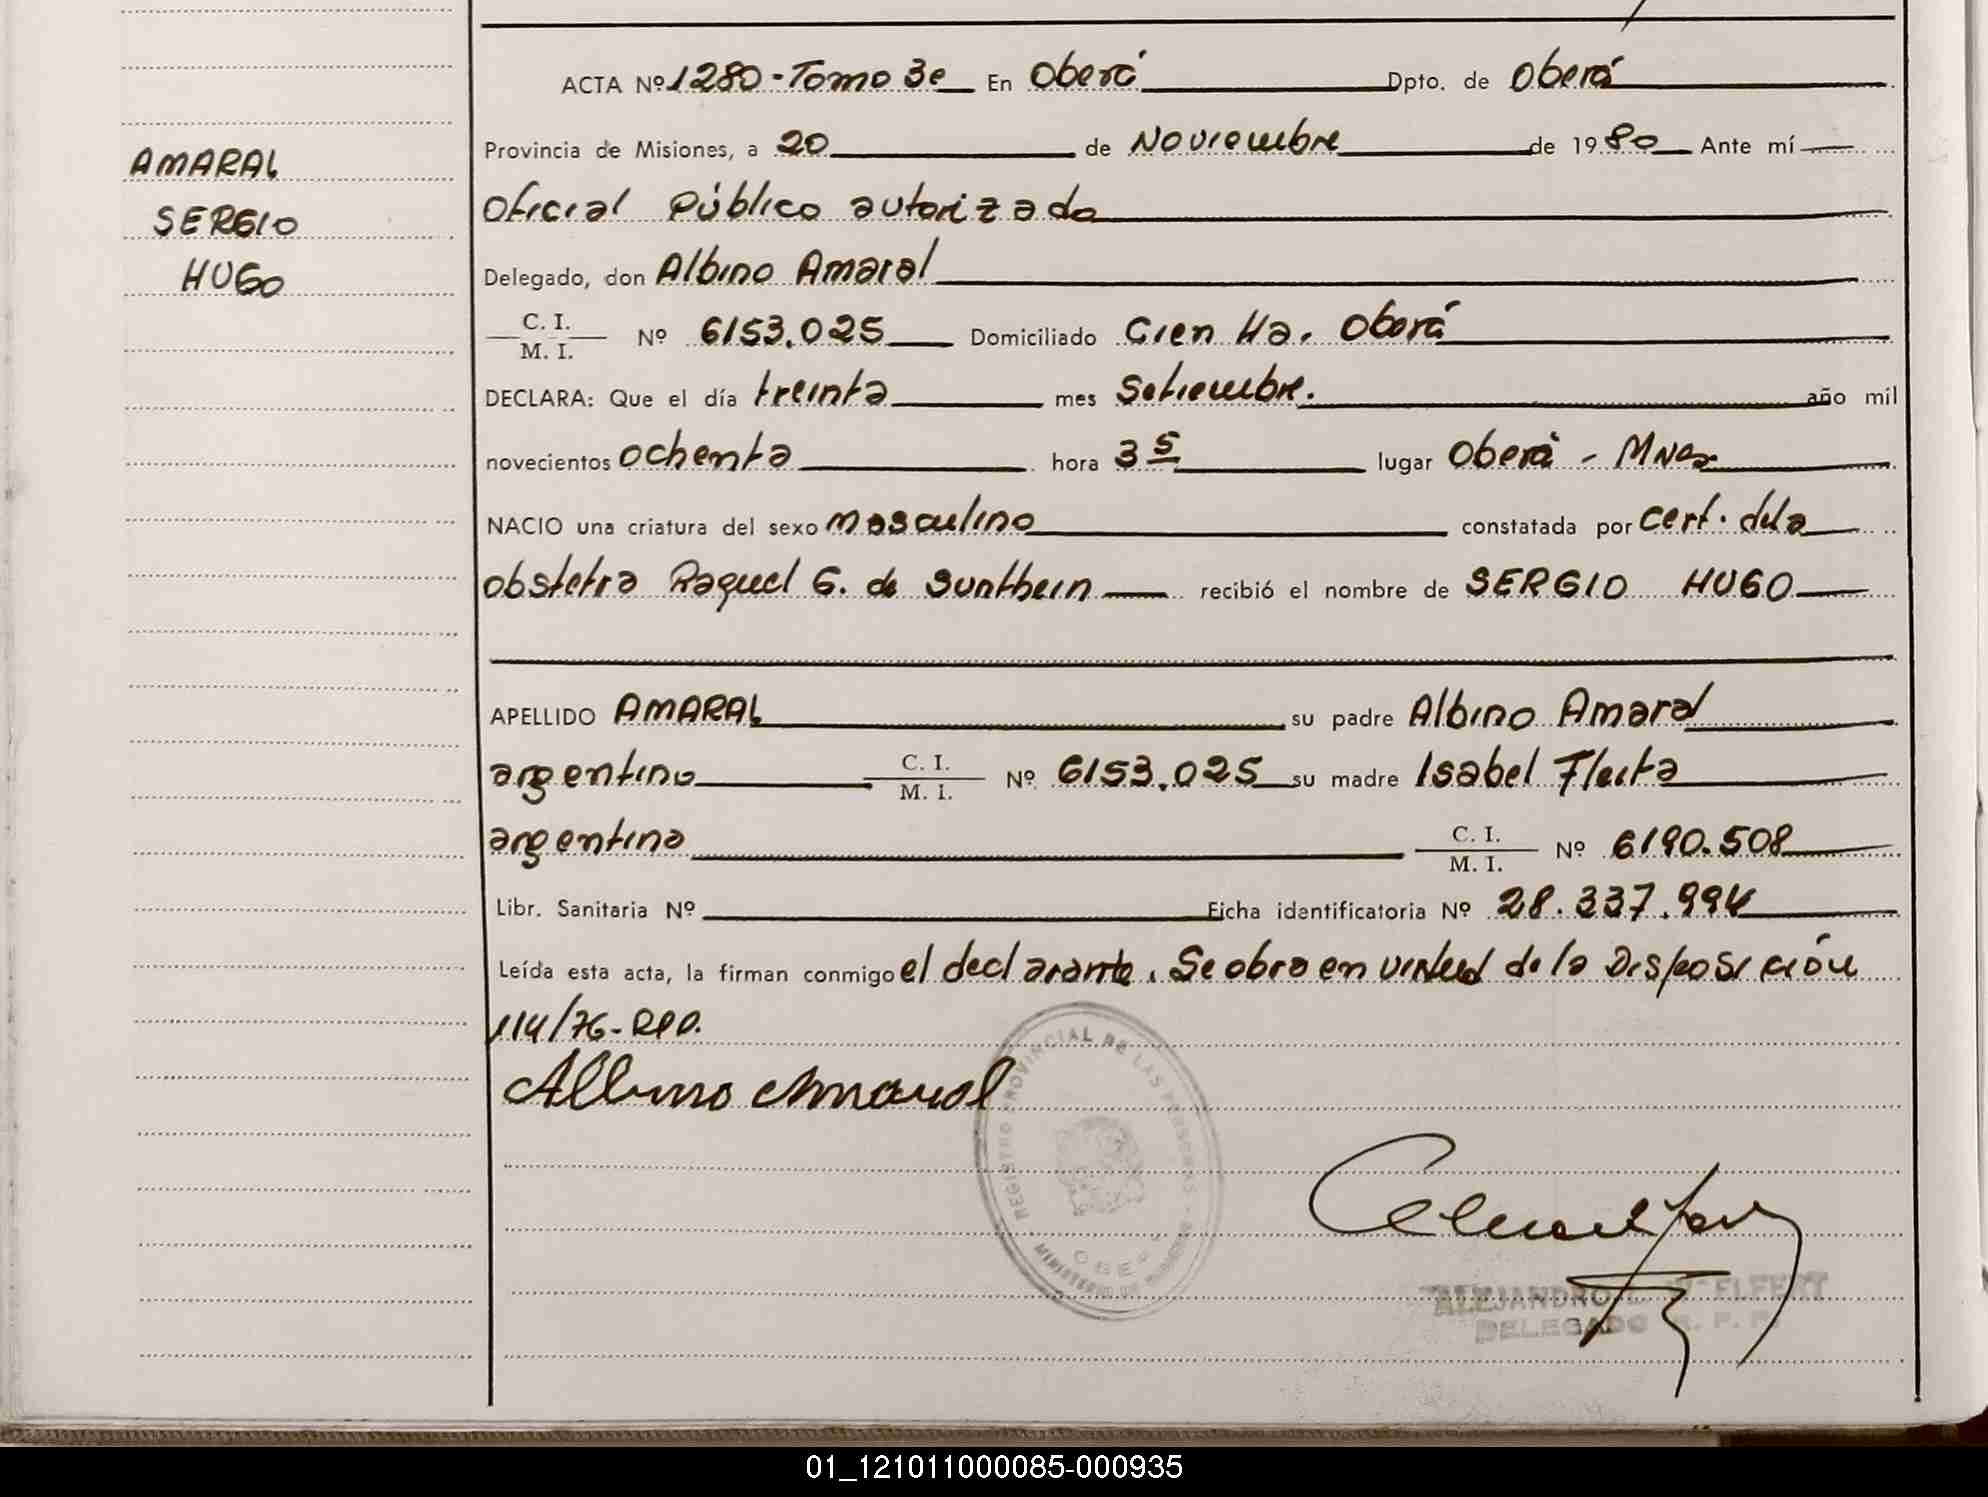 ACTA Nº 1280 - Tomo 3e En Oberá Dpto. de Oberá
AMARAL
SERGIO
HUGO
Provincia de Misiones, a 20 de Noviembre de 1980 Ante mí
Oficial Público autorizado
Delegado, don Albino Amaral
C. I.
M. I. Nº 6153.025 Domiciliado Cien Ha. Oberá
DECLARA: Que el día treinta mes Setiembre. año mil
novecientos ochenta hora 3 5 lugar Oberá - Mnes
NACIO una criatura del sexo masculino constatada por cert. de la
obstetra Raquel G. de Sunthein recibió el nombre de SERGIO HUGO
APELLIDO AMARAL su padre Albino Amaral
argentino C. I. M. I. Nº 6153.025 su madre Isabel Fleita
argentina C. I. M. I. Nº 6190.508
Libr. Sanitaria Nº Ficha identificatoria Nº 28.337.994
Leída esta acta, la firman conmigo el declarante. Se obra en virtud de la Disposición
114/76-RPP.
Albino Amaral
REGISTRO PROVINCIAL DE LAS PERSONAS
MINISTERIO DE
ALEJANDRO ELFERT
DELEGADO R. P. P.
01_121011000085-000935